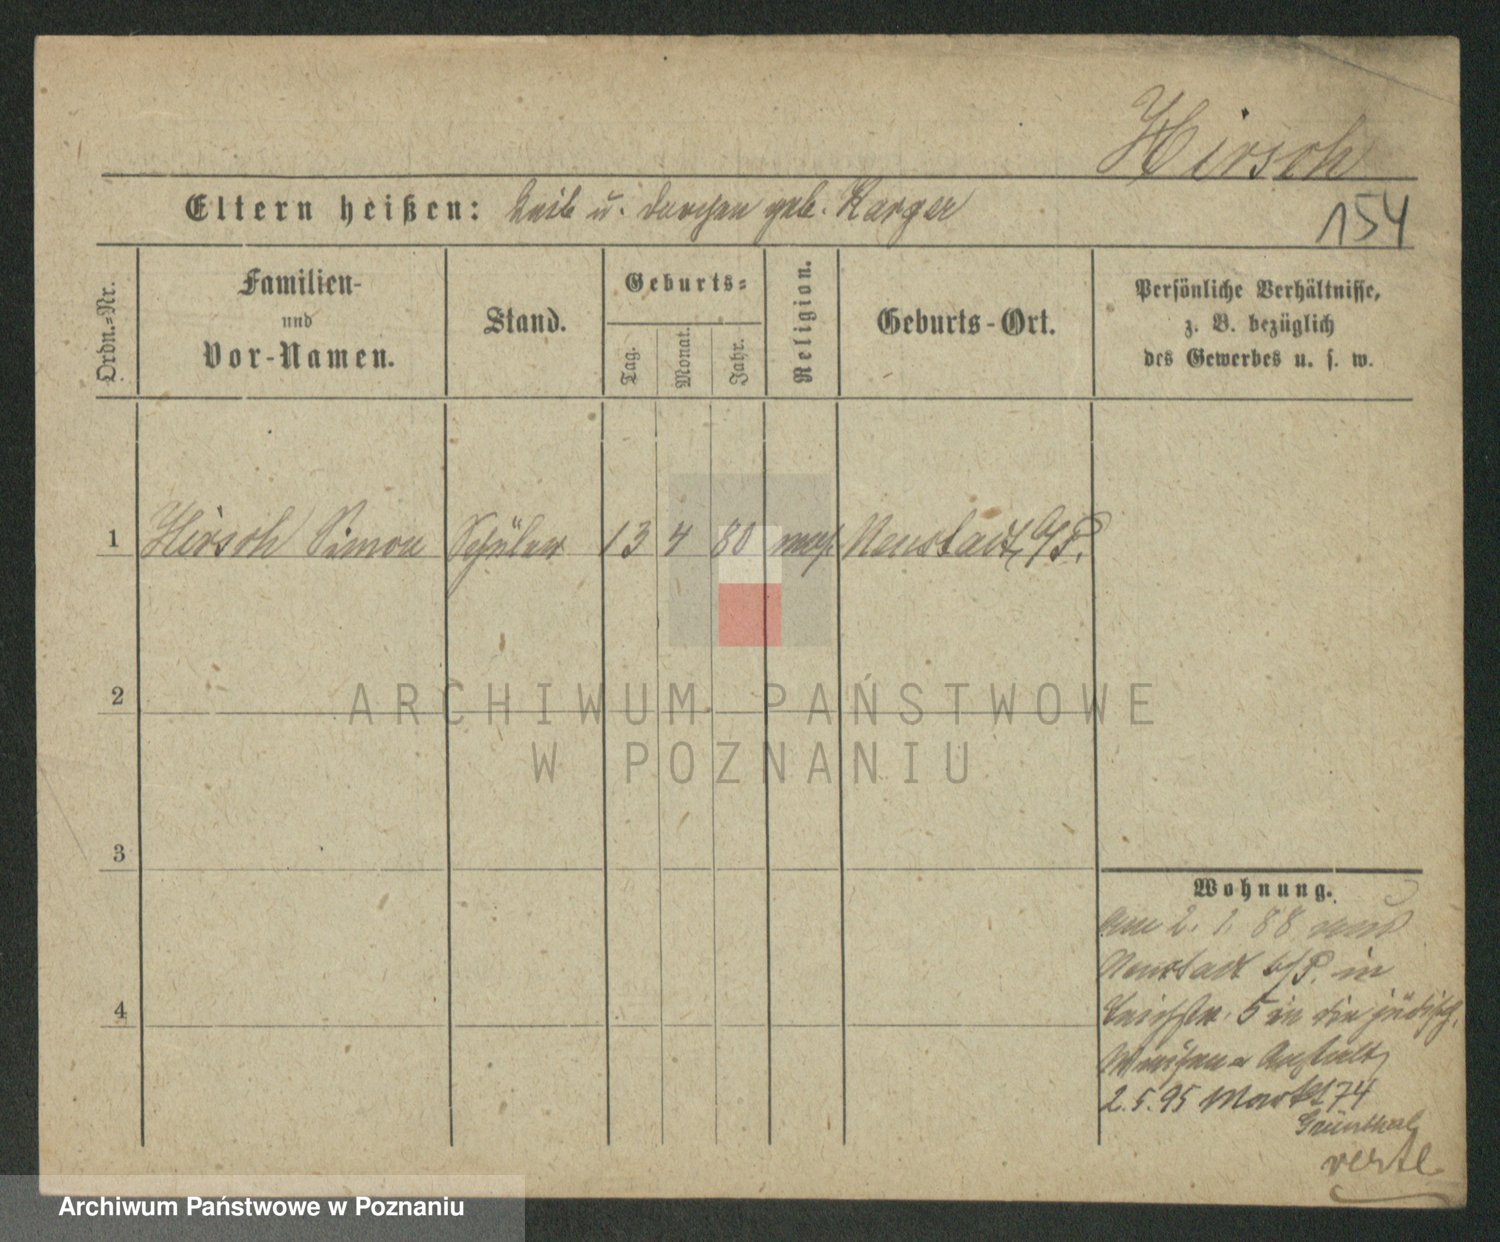 Hirsch
Eltern heißen: Leib u. Dorchen geb. Karger
154
Ordn.-Nr.
Familien-
und
Vor-Namen.
Stand.
Geburts-
Tag.
Monat.
Jahr.
Religion.
Geburts-Ort.
Persönliche Verhältnisse,
z. B. bezüglich
des Gewerbes u. s. w.
1 Hirsch Simon Schüler 13 4 80 mos. Neustadt, b/P.
2
3
4
ARCHIWUM PAŃSTWOWE
W POZNANIU
Wohnung.
Am 2. 1. 88 von
Neustadt b/P. in
Teichstr. 5 in die jüdisch.
Waisen-Anstalt
2.5.95 Markt 74
Grünthal
Archiwum Państwowe w Poznaniu